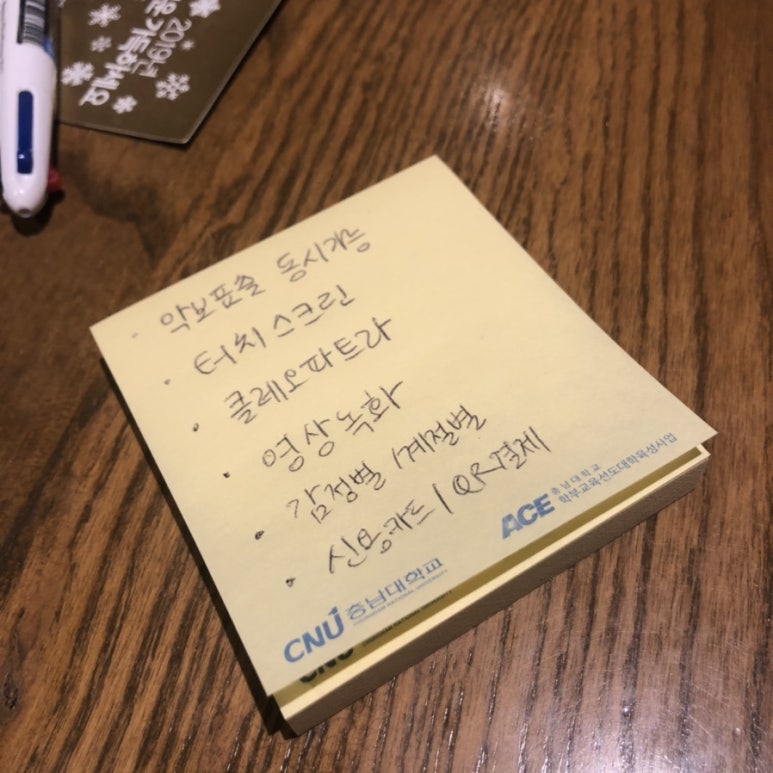 2019년
기록하세요
· 악보표출 동시가능
· 터치스크린
· 클레오파트라
· 영상녹화
· 감정별 / 계절별
· 신용카드 / QR결제
ACE 충남대학교
학부교육선도대학육성사업
CNU 충남대학교
CHUNGNAM NATIONAL UNIVERSITY
CNU